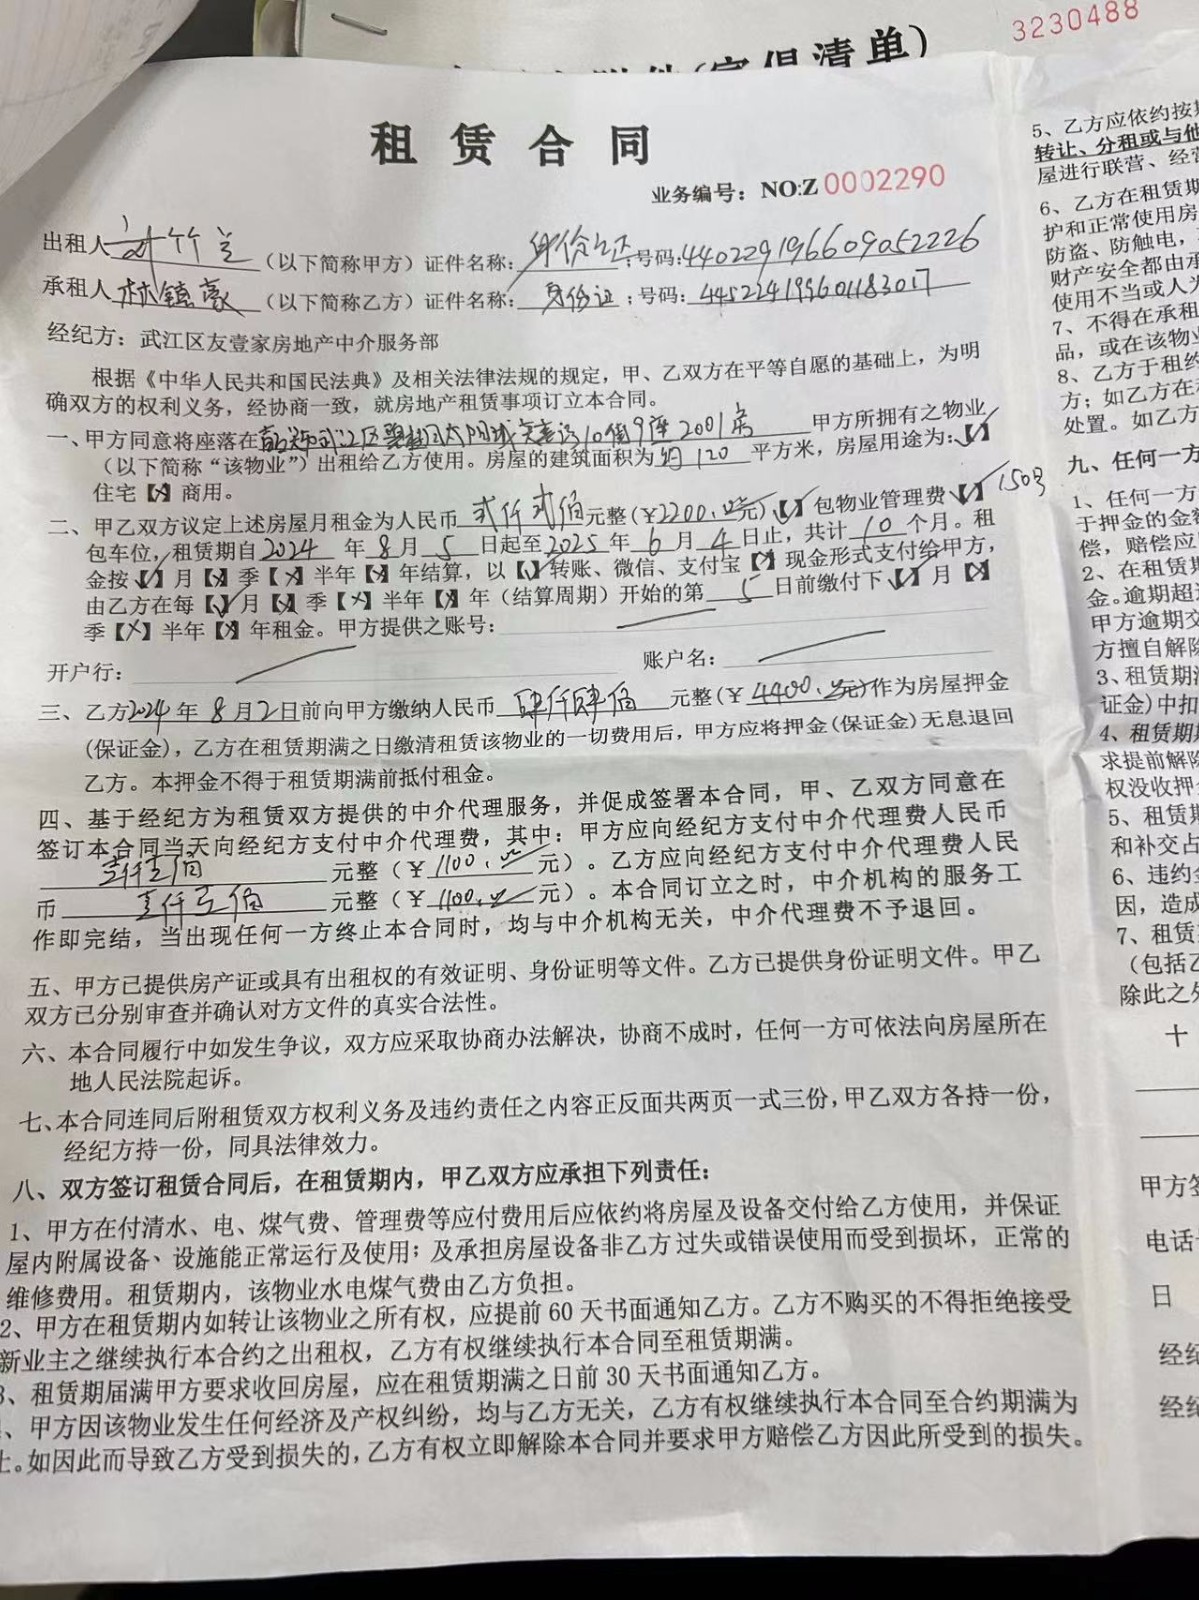 3230488
清单)
租赁合同
业务编号：NO:Z 0002290
出租人 (以下简称甲方) 证件名称：身份证；号码：440229196609052226
承租人 林镇豪 (以下简称乙方) 证件名称：身份证；号码：445224199601183017
经纪方：武江区友壹家房地产中介服务部
根据《中华人民共和国民法典》及相关法律法规的规定，甲、乙双方在平等自愿的基础上，为明
确双方的权利义务，经协商一致，就房地产租赁事项订立本合同。
一、甲方同意将座落在 武江区碧桂园太阳城 10街9座2001房 甲方所拥有之物业
(以下简称“该物业”) 出租给乙方使用。房屋的建筑面积为 约120 平方米，房屋用途为：【√】
住宅【×】商用。
二、甲乙双方议定上述房屋月租金为人民币 贰仟贰佰 元整(¥2200.00元)【√】包物业管理费【√】150号
包车位，租赁期自2024年8月5日起至2025年6月4日止，共计10个月。租
金按【√】月【×】季【×】半年【×】年结算，以【√】转账、微信、支付宝【×】现金形式支付给甲方，
由乙方在每【√】月【×】季【×】半年【×】年（结算周期）开始的第5日前缴付下【√】月【×】
季【×】半年【×】年租金。甲方提供之账号：
开户行： 账户名：
三、乙方2024年8月2日前向甲方缴纳人民币 肆仟肆佰 元整(¥4400.00元)作为房屋押金
(保证金)，乙方在租赁期满之日缴清租赁该物业的一切费用后，甲方应将押金(保证金)无息退回
乙方。本押金不得于租赁期满前抵付租金。
四、基于经纪方为租赁双方提供的中介代理服务，并促成签署本合同，甲、乙双方同意在
签订本合同当天向经纪方支付中介代理费，其中：甲方应向经纪方支付中介代理费人民币
壹仟壹佰 元整（¥1100.00元）。乙方应向经纪方支付中介代理费人民
币 壹仟壹佰 元整（¥1100.00元）。本合同订立之时，中介机构的服务工
作即完结，当出现任何一方终止本合同时，均与中介机构无关，中介代理费不予退回。
五、甲方已提供房产证或具有出租权的有效证明、身份证明等文件。乙方已提供身份证明文件。甲乙
双方已分别审查并确认对方文件的真实合法性。
六、本合同履行中如发生争议，双方应采取协商办法解决，协商不成时，任何一方可依法向房屋所在
地人民法院起诉。
七、本合同连同后附租赁双方权利义务及违约责任之内容正反面共两页一式三份，甲乙双方各持一份，
经纪方持一份，同具法律效力。
八、双方签订租赁合同后，在租赁期内，甲乙双方应承担下列责任：
1、甲方在付清水、电、煤气费、管理费等应付费用后应依约将房屋及设备交付给乙方使用，并保证
屋内附属设备、设施能正常运行及使用；及承担房屋设备非乙方过失或错误使用而受到损坏，正常的
维修费用。租赁期内，该物业水电煤气费由乙方负担。
2、甲方在租赁期内如转让该物业之所有权，应提前60天书面通知乙方。乙方不购买的不得拒绝接受
新业主之继续执行本合约之出租权，乙方有权继续执行本合同至租赁期满。
3、租赁期届满甲方要求收回房屋，应在租赁期满之日前30天书面通知乙方。
、甲方因该物业发生任何经济及产权纠纷，均与乙方无关，乙方有权继续执行本合同至合约期满为
止。如因此而导致乙方受到损失的，乙方有权立即解除本合同并要求甲方赔偿乙方因此所受到的损失。
5、乙方应依约按
转让、分租或与他
屋进行联营、经营
6、乙方在租赁期
护和正常使用房
防盗、防触电，
财产安全都由承
使用不当或人为
7、不得在承租
品，或在该物业
8、乙方于租约
方；如乙方在
处置。如乙方
九、任何一方
1、任何一方
于押金的金
偿，赔偿应
2、在租赁期
金。逾期超
甲方逾期交
方擅自解除
3、租赁期
证金)中扣
4、租赁期
求提前解除
权没收押
5、租赁期
和补交占
6、违约金
因，造成
7、租赁
（包括乙
除此之外
十
甲方签
电话
日
经纪
经纪